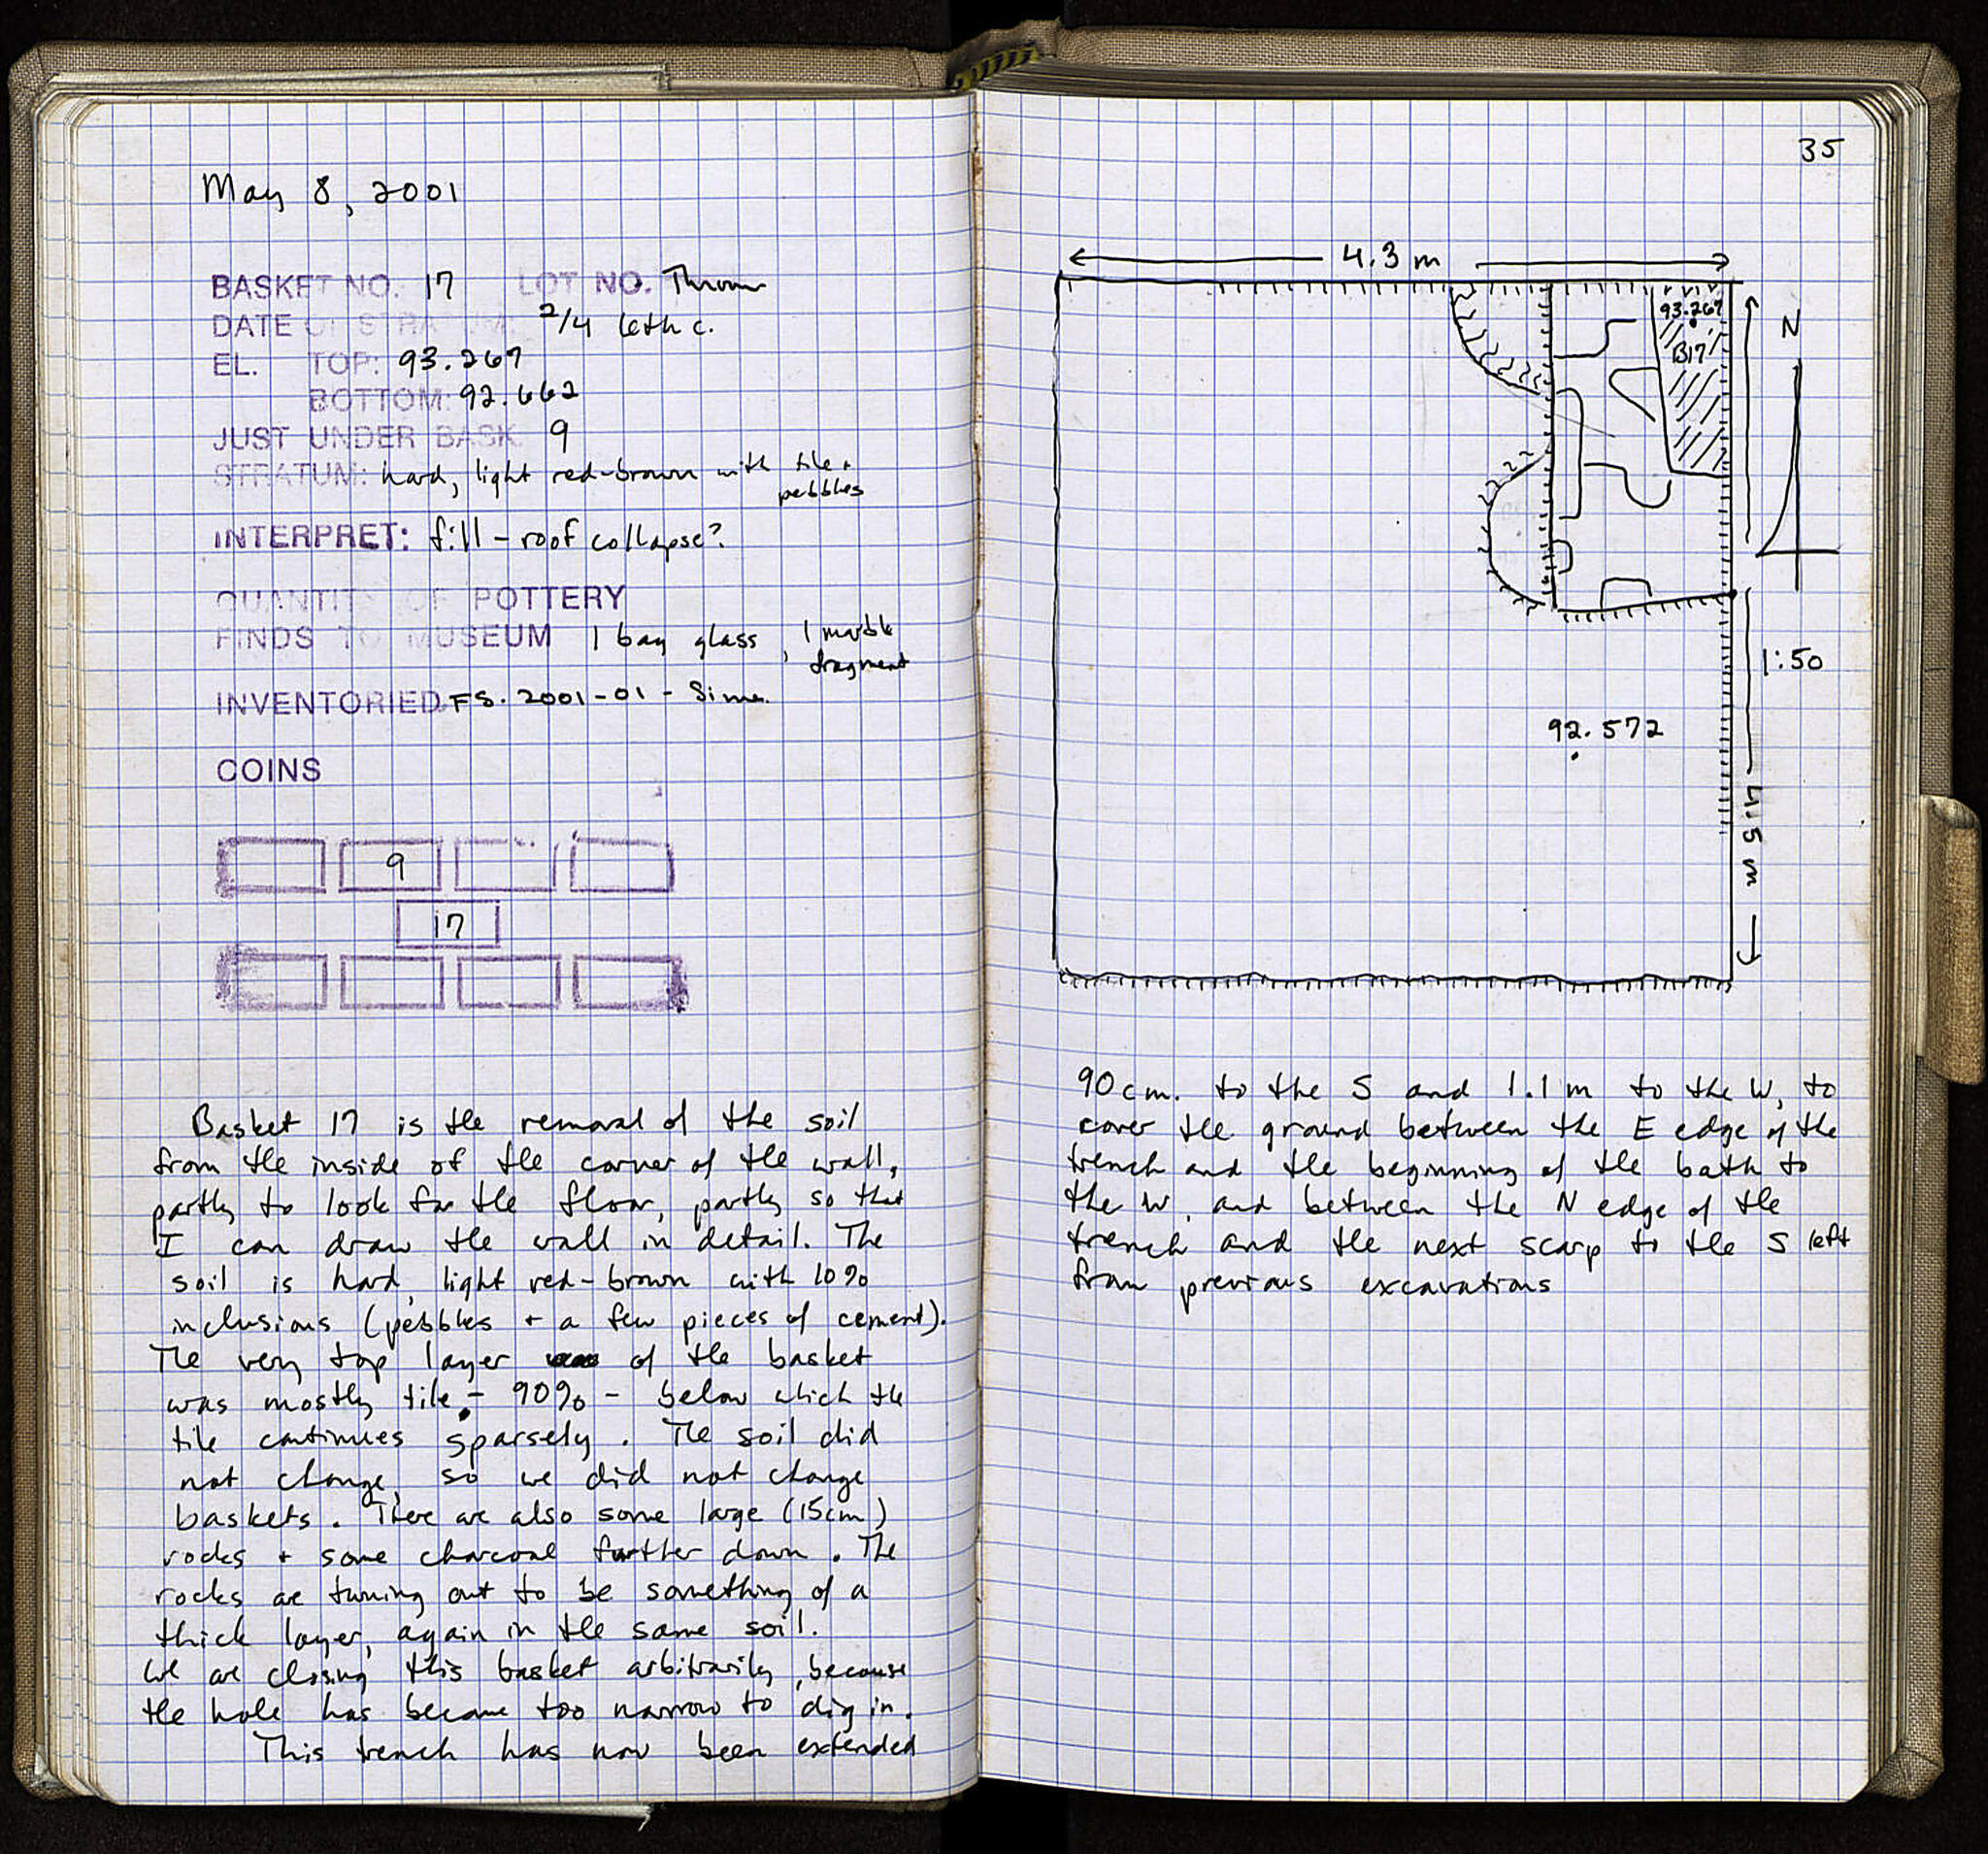 May 8, 2001
BASKET NO. 17 LOT NO. Thrown
DATE OF STRATUM: 2/4 6th c.
EL. TOP: 93.267
BOTTOM: 92.662
JUST UNDER BASK. 9
STRATUM: hard, light red-brown with tile +
pebbles
INTERPRET: fill - roof collapse?
QUANTITY OF POTTERY
FINDS TO MUSEUM 1 bag glass, 1 marble
fragment
INVENTORIED FS. 2001-01 - Sima.
COINS
9
17
Basket 17 is the removal of the soil
from the inside of the corner of the wall,
partly to look for the floor, partly so that
I can draw the wall in detail. The
soil is hard, light red-brown with 10%
inclusions (pebbles + a few pieces of cement).
The very top layer of the basket
was mostly tile - 90% - below which the
tile continues sparsely. The soil did
not change, so we did not change
baskets. There are also some large (15cm)
rocks + some charcoal further down. The
rocks are turning out to be something of a
thick layer, again in the same soil.
We are closing this basket arbitrarily, because
the hole has become too narrow to dig in.
This trench has now been extended
35
4.3 m
93.267
B17
N
1:50
92.572
4.5 m
90 cm. to the S and 1.1 m to the W, to
cover the ground between the E edge of the
trench and the beginning of the bath to
the W, and between the N edge of the
trench and the next scarp to the S left
from previous excavations